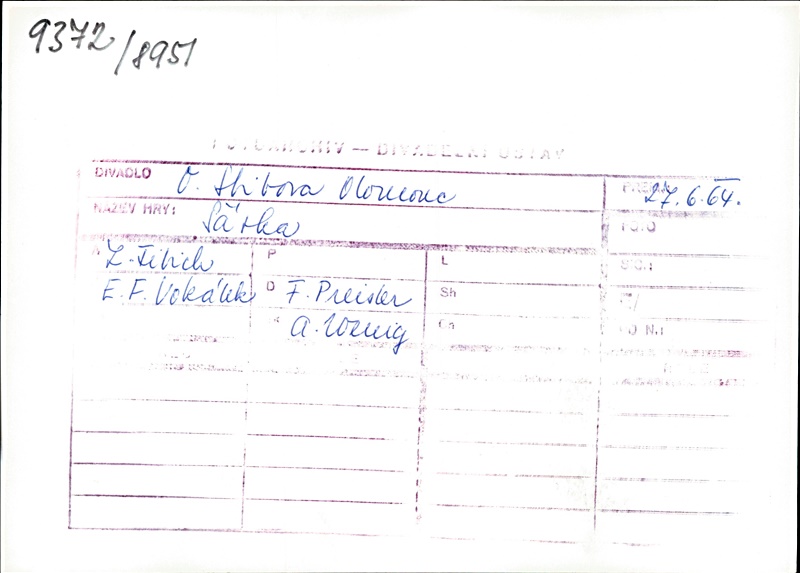 9372/8951
FOTOARCHIV — DIVADELNÍ ÚSTAV
DIVADLO O. Stibora Olomouc PREM. 27.6.64.
NÁZEV HRY: Šárka FOTO
Z. Fibich P L
E. F. Vokálek D F. Preisler Sh
A. Wenig